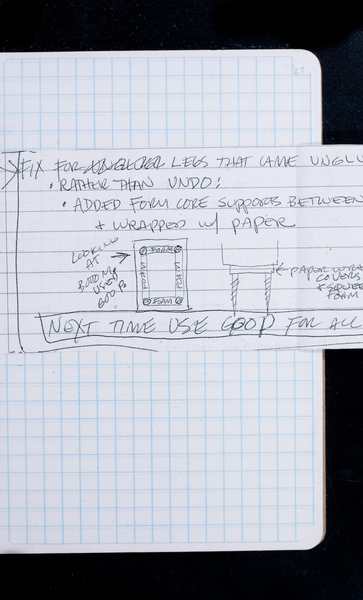 27
FIX FOR LEGS THAT CAME UNGLU
• RATHER THAN UNDO:
• ADDED FORM CORE SUPPORTS BETWEEN
+ WRAPPED W/ PAPER
LOOKING
AT
BOTTOM
USED
GOOP
FOAM
FOAM
PAPER
COVERS
FOAM
NEXT TIME USE GOOP FOR ALL